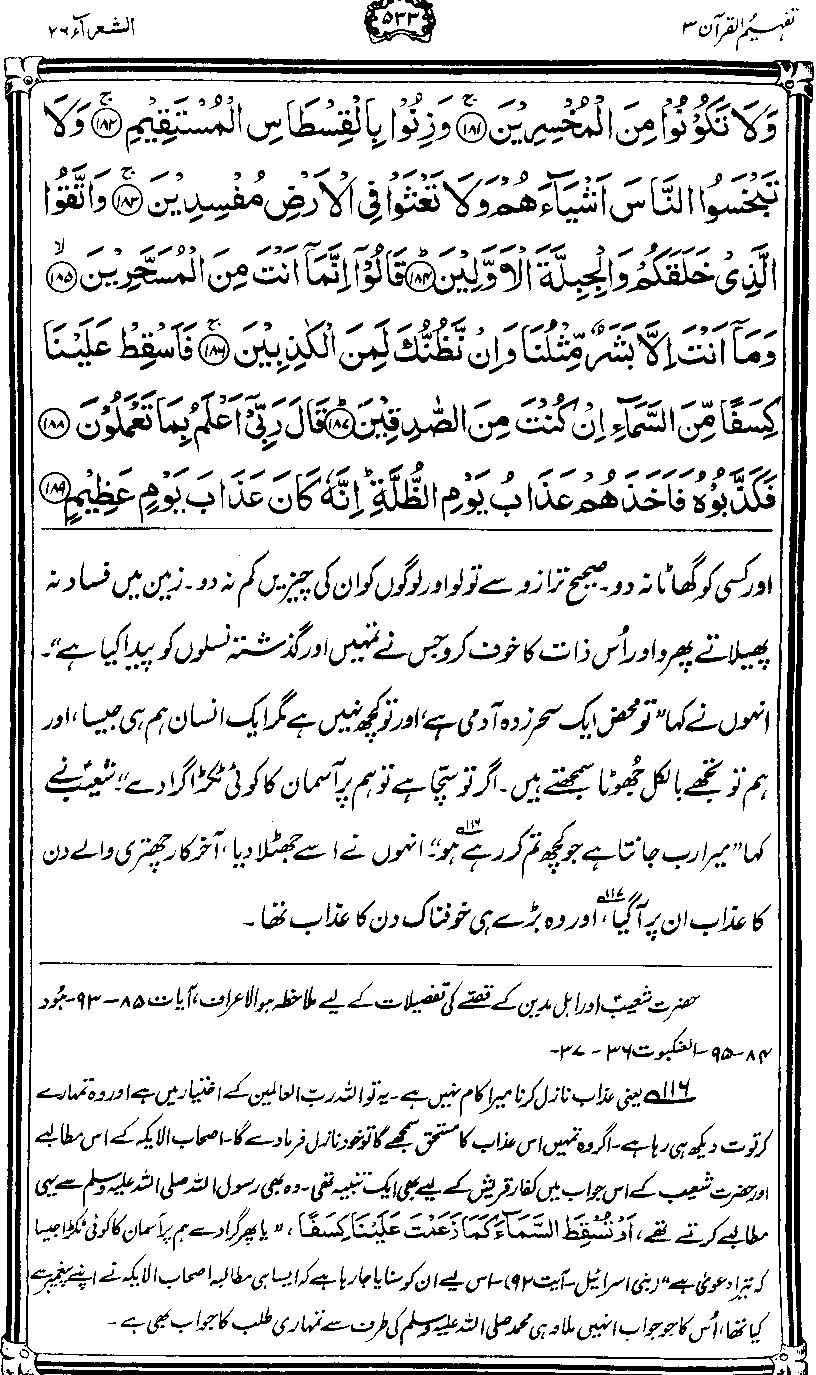 تفہیم القرآن ۳
۵۳۳
الشعراء ۲۶
وَلَا تَكُوْنُوْا مِنَ الْمُخْسِرِيْنَ ﴿۱۸۱﴾ۚ وَزِنُوْا بِالْقِسْطَاسِ الْمُسْتَقِيْمِ ﴿۱۸۲﴾ۚ وَلَا
تَبْخَسُوا النَّاسَ اَشْيَآءَهُمْ وَلَا تَعْثَوْا فِى الْاَرْضِ مُفْسِدِيْنَ ﴿۱۸۳﴾ۚ وَاتَّقُوا
الَّذِىْ خَلَقَكُمْ وَالْجِبِلَّةَ الْاَوَّلِيْنَ ﴿۱۸۴﴾ؕ قَالُوْٓا اِنَّمَآ اَنْتَ مِنَ الْمُسَحَّرِيْنَ ﴿۱۸۵﴾ۙ
وَمَآ اَنْتَ اِلَّا بَشَرٌ مِّثْلُنَا وَاِنْ نَّظُنُّكَ لَمِنَ الْكٰذِبِيْنَ ﴿۱۸۶﴾ۚ فَاَسْقِطْ عَلَيْنَا
كِسَفًا مِّنَ السَّمَآءِ اِنْ كُنْتَ مِنَ الصّٰدِقِيْنَ ﴿۱۸۷﴾ؕ قَالَ رَبِّىْٓ اَعْلَمُ بِمَا تَعْمَلُوْنَ ﴿۱۸۸﴾
فَكَذَّبُوْهُ فَاَخَذَهُمْ عَذَابُ يَوْمِ الظُّلَّةِ ؕ اِنَّهٗ كَانَ عَذَابَ يَوْمٍ عَظِيْمٍ ﴿۱۸۹﴾
اور کسی کو گھاٹا نہ دو۔ صحیح ترازو سے تولو اور لوگوں کو ان کی چیزیں کم نہ دو۔ زمین میں فساد نہ
پھیلاتے پھرو اور اُس ذات کا خوف کرو جس نے تمہیں اور گذشتہ نسلوں کو پیدا کیا ہے“۔
انہوں نے کہا ”تو محض ایک سحرزدہ آدمی ہے، اور تو کچھ نہیں ہے مگر ایک انسان ہم ہی جیسا، اور
ہم تو تجھے بالکل جھوٹا سمجھتے ہیں۔ اگر تو سچا ہے تو ہم پر آسمان کا کوئی ٹکڑا گرا دے“۔ شعیبؑ نے
کہا ”میرا رب جانتا ہے جو کچھ تم کر رہے ہو“۱۱۶۔ انہوں نے اسے جھٹلا دیا، آخرکار چھتری والے دن
کا عذاب ان پر آگیا۱۱۷، اور وہ بڑے ہی خوفناک دن کا عذاب تھا۔
حضرت شعیبؑ اور اہل مدین کے قصے کی تفصیلات کے لیے ملاحظہ ہو الاعراف، آیات ۸۵ – ۹۳۔ ہُود
۸۴ – ۹۵۔ العنکبوت ۳۶ – ۳۷۔
۱۱۶ یعنی عذاب نازل کرنا میرا کام نہیں ہے۔ یہ تو اللہ ربّ العالمین کے اختیار میں ہے اور وہ تمہارے
کرتوت دیکھ ہی رہا ہے۔ اگر وہ تمہیں اس عذاب کا مستحق سمجھے گا تو خود نازل فرما دے گا۔ اصحاب الایکہ کے اس مطالبے
اور حضرت شعیب کے اس جواب میں کفار قریش کے لیے بھی ایک تنبیہ تھی۔ وہ بھی رسول اللہ صلی اللہ علیہ وسلم سے یہی
مطالبے کرتے تھے، اَوْ تُسْقِطَ السَّمَآءَ كَمَا زَعَمْتَ عَلَيْنَا كِسَفًا، ”یا پھر گرا دے ہم پر آسمان کا کوئی ٹکڑا جیسا
کہ تیرا دعویٰ ہے“ (بنی اسرائیل۔ آیت ۹۲)۔ اس لیے ان کو سنایا جا رہا ہے کہ ایسا ہی مطالبہ اصحاب الایکہ نے اپنے پیغمبر سے
کیا تھا، اُس کا جو جواب انہیں ملا وہی محمد صلی اللہ علیہ وسلم کی طرف سے تمہاری طلب کا جواب بھی ہے۔